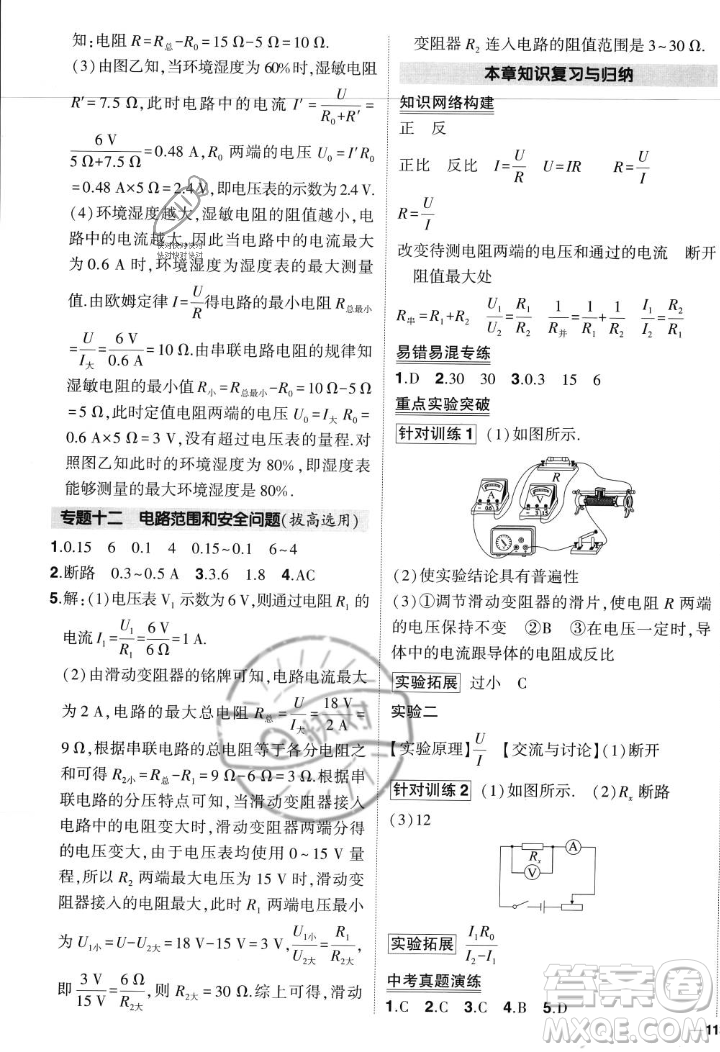 知:电阻 R=R总-R0=15 Ω-5 Ω=10 Ω.
(3)由图乙知,当环境湿度为60%时,湿敏电阻
R′=7.5 Ω,此时电路中的电流 I′=U/(R0+R′)
=6 V/(5 Ω+7.5 Ω)=0.48 A,R0 两端的电压 U0=I′R0
=0.48 A×5 Ω=2.4 V,即电压表的示数为2.4 V.
(4)环境湿度越大,湿敏电阻的阻值越小,电
路中的电流越大,因此当电路中的电流最大
为0.6 A时,环境湿度为湿度表的最大测量
值.由欧姆定律 I=U/R得电路的最小电阻 R总最小
=U/I大=6 V/0.6 A=10 Ω.由串联电路电阻的规律知
湿敏电阻的最小值 R小=R总最小-R0=10 Ω-5 Ω
=5 Ω.此时定值电阻两端的电压 U0=I大 R0=
0.6 A×5 Ω=3 V,没有超过电压表的量程.对
照图乙知此时的环境湿度为80%,即湿度表
能够测量的最大湿度为80%.
专题十二 电路范围和安全问题(拔高选用)
1.0.15 6 0.1 4 0.15~0.1 6~4
2.断路 0.3~0.5 A 3.3.6 1.8 4.AC
5.解:(1)电压表 V1 示数为6 V,则通过电阻 R1 的
电流 I1=U1/R1=6 V/6 Ω=1 A.
(2)由滑动变阻器的铭牌可知,电路电流最大
为2 A,电路的最大总电阻 R总=U/I大=18 V/2 A=
9 Ω,根据串联电路的总电阻等于各分电阻之
和得 R2小=R总-R1=9 Ω-6 Ω=3 Ω.根据串
联电路的分压特点可知,当滑动变阻器接入
电路中的电阻变大时,滑动变阻器两端分得
的电压变大,由于电压表使用0~15 V的量
程,所以 R2 两端电压最大为15 V时,滑动变
阻器接入的电阻最大,此时 R1 两端电压最小
为 U1小=U-U2大=18 V-15 V=3 V,U1小/U2大=R1/R2大,
即 3 V/15 V=6 Ω/R2大,R2大=30 Ω.综上可得,滑动
变阻器 R2 连入电路的阻值范围是3~30 Ω.
本章知识复习与归纳
知识网络构建
正 反
正比 反比 I=U/R U=IR R=U/I
R=U/I
改变待测电阻两端的电压和通过的电流 断开
阻值最大处
R串=R1+R2 U1/U2=R1/R2 1/R并=1/R1+1/R2 I1/I2=R2/R1
易错易混专练
1.D 2.30 30 3.0.3 15 6
重点实验突破
针对训练1 (1)如图所示.
R
A
V
(2)使实验结论具有普遍性
(3)①调节滑动变阻器的滑片,使电阻 R 两端
的电压保持不变 ②B ③在电压一定时,导
体中的电流跟导体的电阻成反比
实验拓展 过小 C
实验二
【实验原理】U/I 【交流与讨论】(1)断开
针对训练2 (1)如图所示. (2)Rx 断路
(3)12
Rx
A
V
实验拓展 I1R0/(I2-I1)
中考真题演练
1.C 2.C 3.C 4.B 5.D
快对快对快对
快对快对快对
快对
答案圈
MXQE.COM
11